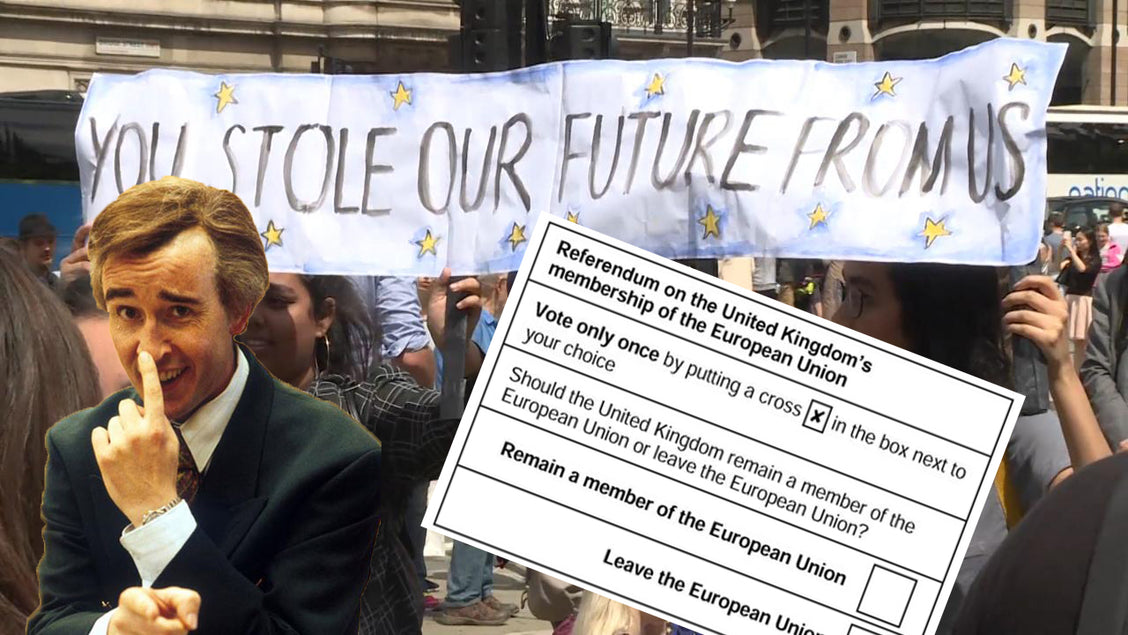 YOU STOLE OUR FUTURE FROM US
Referendum on the United Kingdom's
membership of the European Union
Vote only once by putting a cross x in the box next to
your choice
Should the United Kingdom remain a member of the
European Union or leave the European Union?
Remain a member of the European Union
Leave the European